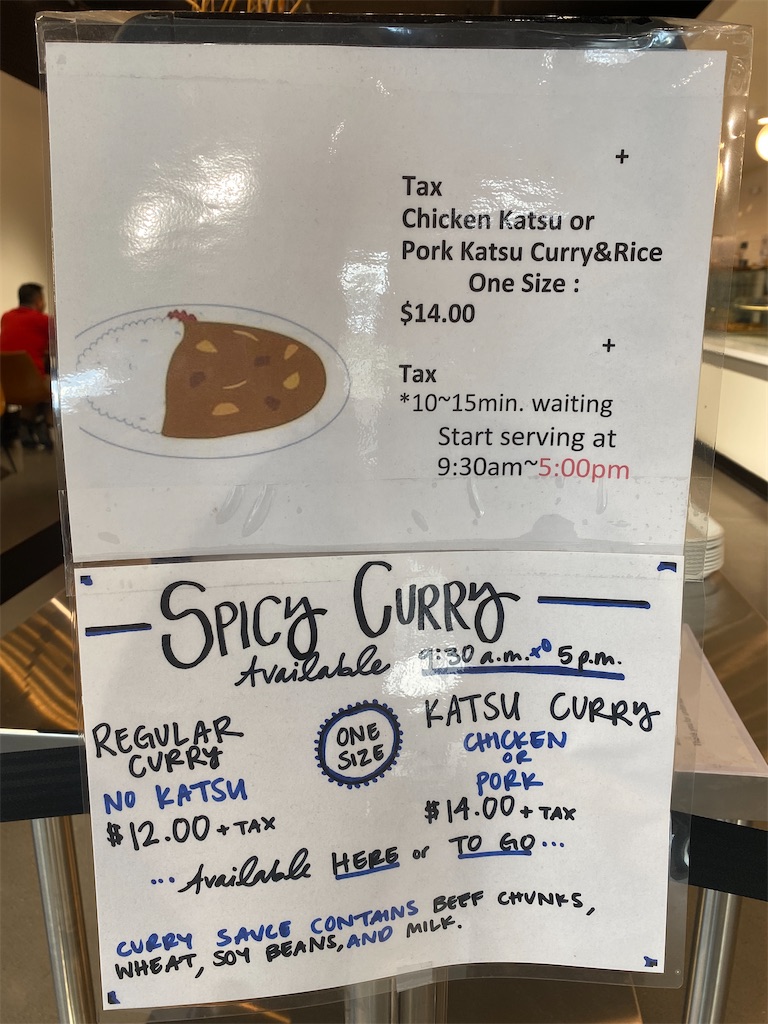 +
Tax
Chicken Katsu or
Pork Katsu Curry&Rice
One Size :
$14.00
+
Tax
*10~15min. waiting
Start serving at
9:30am~5:00pm
SPICY CURRY
Available 9:30 a.m. to 5 p.m.
REGULAR
CURRY
NO KATSU
$12.00 + TAX
ONE
SIZE
KATSU CURRY
CHICKEN
OR
PORK
$14.00 + TAX
... Available HERE or TO GO ...
CURRY SAUCE CONTAINS BEEF CHUNKS,
WHEAT, SOY BEANS, AND MILK.